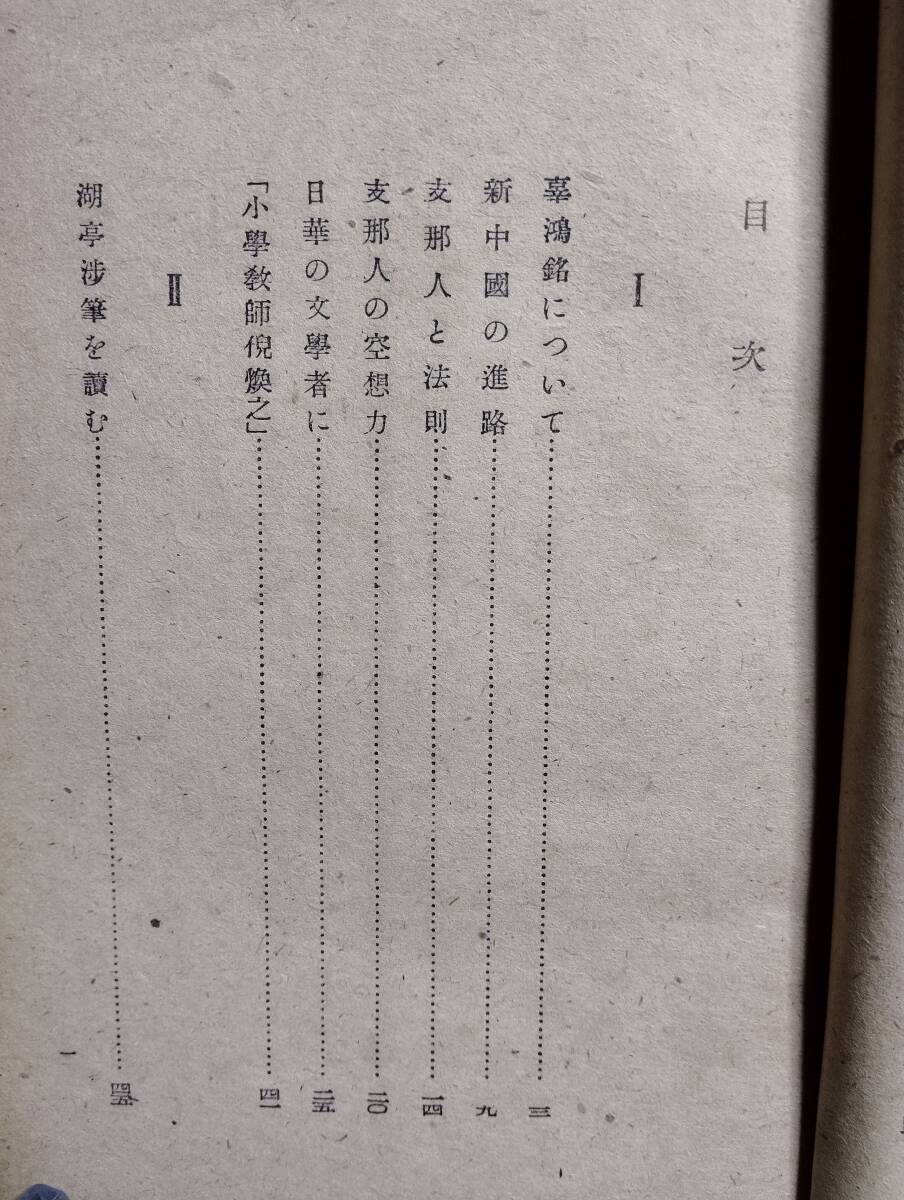 目次
I
辜鴻銘について……三
新中國の進路……九
支那人と法則……一四
支那人の空想力……二〇
日華の文學者に……三五
「小學教師倪煥之」……四一
II
湖亭涉筆を讀む……四五
一